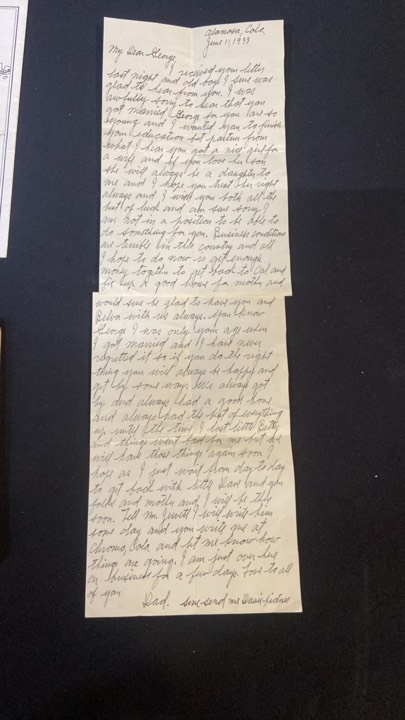 Alamosa, Colo.
June 11, 1933
My Dear George,
I received your letter
last night and old boy I sure was
glad to hear from you. I was
awfully sorry to hear that you
got married George for you are so
young and I wanted you to finish
your education but from
what I hear you got a nice girl for
a wife and if you love her son
she will always be a daughter to
me and I hope you treat her right
always and I wish you both all the
best of luck and am sure sorry I
am not in a position to be able to
do something for you. Business conditions
are terrible in this country and all
I hope to do now is get enough
money together to get back to Cal and
fix up a good home for mother and
would sure be glad to have you and
Belva with us always. You know
George I was only your age when
I got married and I have never
regretted it so if you do the right
thing you will always be happy and
get by some way. We always got
by and always had a good home
and always had the best of everything
up until the time I lost little Betty
and things went bad for me but we
will have those things again soon I
hope as I just wait from day to day
to get back with little Dave and you
folks and mother and I will be there
soon. Tell Mr. I will write him
some day and you write me at
Chromo, Colo. and let me know how
things are going. I am just over here
on business for a few days. Love to all
of you
Dad. sure send me Dave's picture